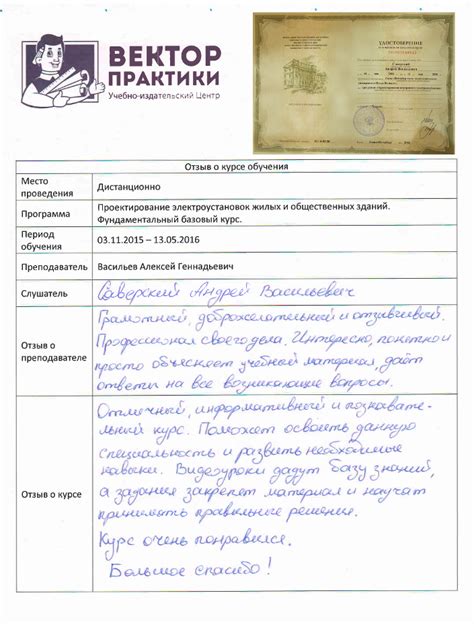 ВЕКТОР
ПРАКТИКИ
Учебно-издательский Центр
УДОСТОВЕРЕНИЕ
Отзыв о курсе обучения
Место
проведения
Дистанционно
Программа
Проектирование электроустановок жилых и общественных зданий.
Фундаментальный базовый курс.
Период
обучения
03.11.2015 – 13.05.2016
Преподаватель
Васильев Алексей Геннадьевич
Слушатель
Саверский Андрей Васильевич
Отзыв о
преподавателе
Грамотный, доброжелательный и отзывчивый.
Профессионал своего дела. Интересно, понятно и
просто объясняет учебный материал, даёт
ответы на все возникающие вопросы.
Отзыв о курсе
Отличный, информативный и познава-
тельный курс. Поможет освоить данную
специальность и развить необходимые
навыки. Видеоуроки дадут базу знаний,
а задания закрепят материал и научат
принимать правильные решения.
Курс очень понравился.
Большое спасибо!